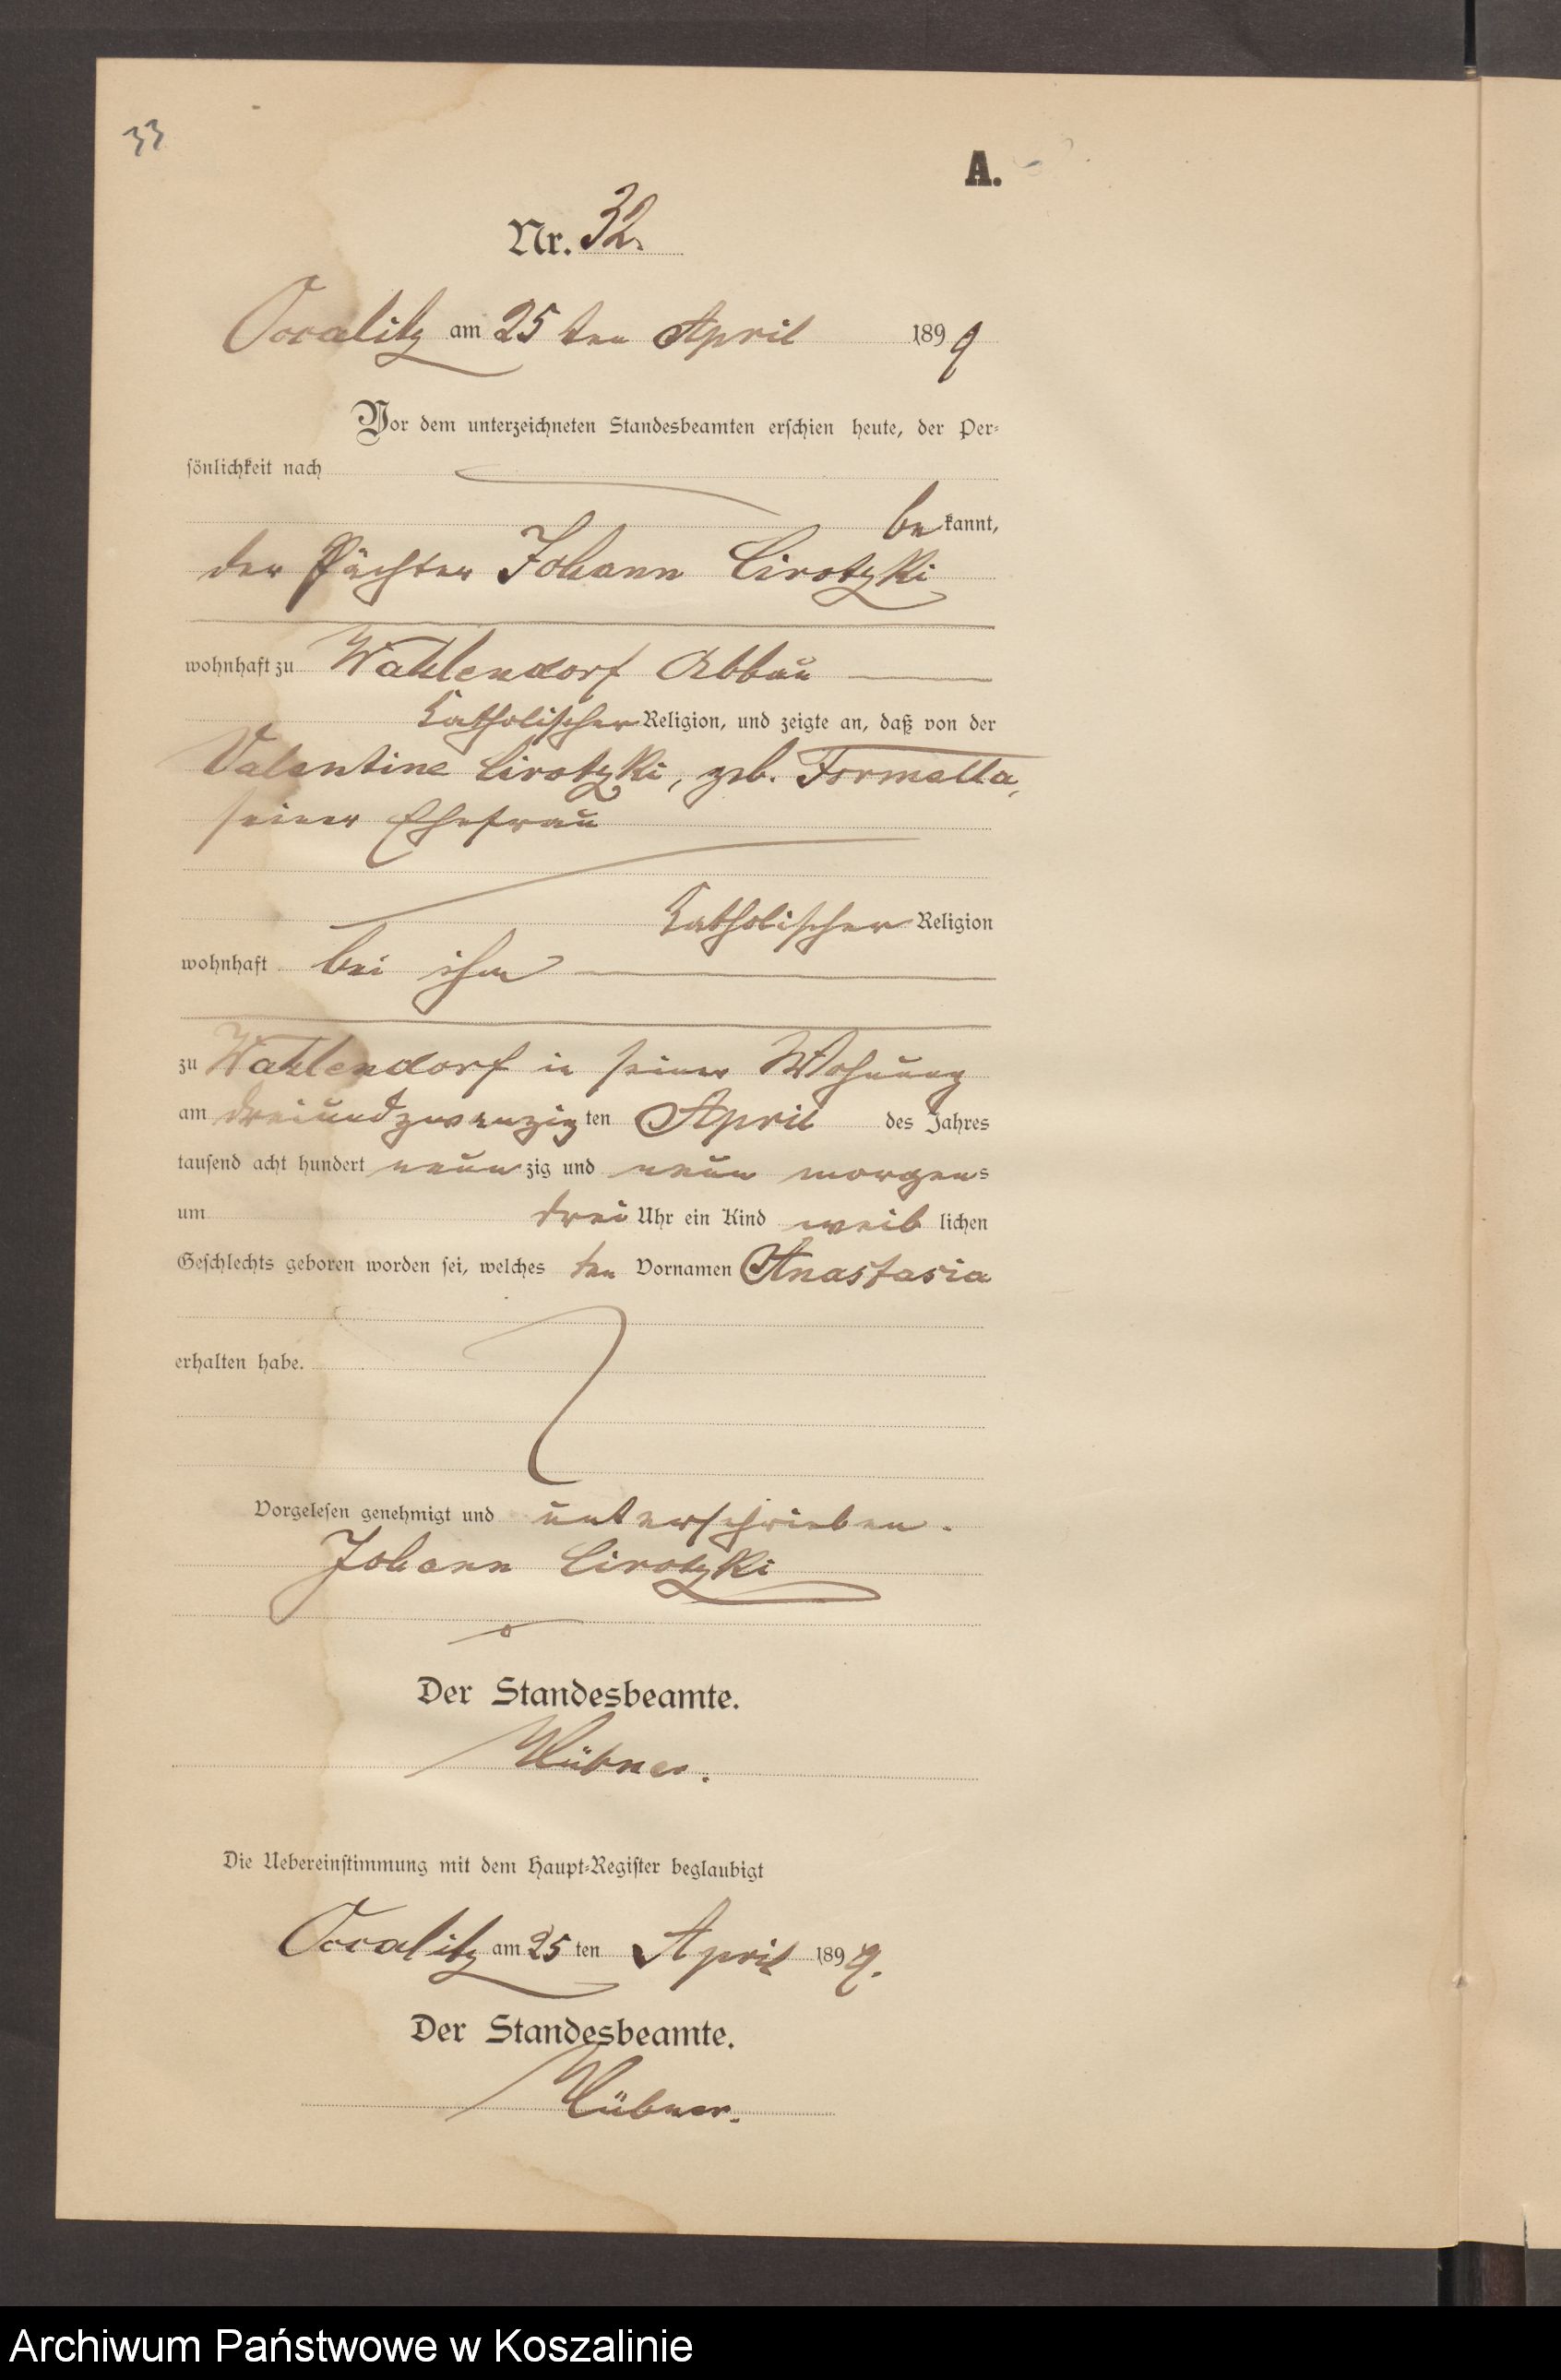 33
A.
Nr. 32.
Occalitz am 25 ten April 1899
Vor dem unterzeichneten Standesbeamten erschien heute, der Per-
sönlichkeit nach
be kannt,
der Pächter Johann Cirotzki
wohnhaft zu Wahlendorf Abbau
katholischer Religion, und zeigte an, daß von der
Valentine Cirotzki, geb. Formella,
seiner Ehefrau
katholischer Religion
wohnhaft bei ihm
zu Wahlendorf in seiner Wohnung
am dreiundzwanzig ten April des Jahres
tausend acht hundert neun zig und neun morgens
um drei Uhr ein Kind weib lichen
Geschlechts geboren worden sei, welches den Vornamen Anastasia
erhalten habe.
Vorgelesen genehmigt und unterschrieben.
Johann Cirotzki
Der Standesbeamte.
Hübner.
Die Uebereinstimmung mit dem Haupt-Register beglaubigt
Occalitz am 25 ten April 1899.
Der Standesbeamte.
Hübner.
Archiwum Państwowe w Koszalinie